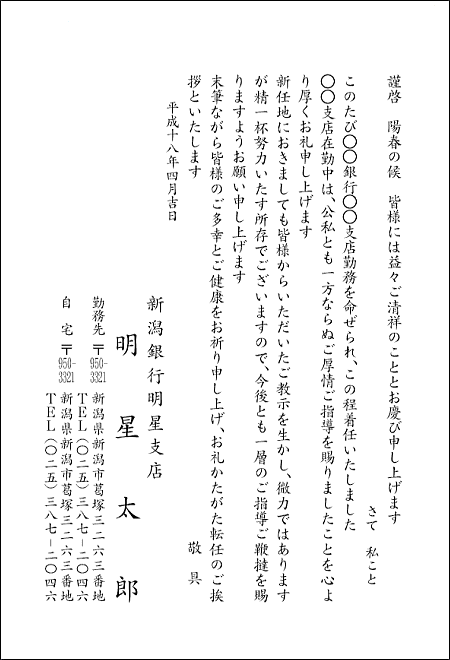 謹啓　陽春の候　皆様には益々ご清祥のこととお慶び申し上げます
さて　私こと
このたび〇〇銀行〇〇支店勤務を命ぜられ、この程着任いたしました
〇〇支店在勤中は、公私とも一方ならぬご厚情ご指導を賜りましたことを心よ
り厚くお礼申し上げます
新任地におきましても皆様からいただいたご教示を生かし、微力ではあります
が精一杯努力いたす所存でございますので、今後とも一層のご指導ご鞭撻を賜
りますようお願い申し上げます
末筆ながら皆様のご多幸とご健康をお祈り申し上げ、お礼かたがた転任のご挨
拶といたします
敬具
平成十八年四月吉日
新潟銀行明星支店
明星太郎
勤務先　〒950-3321　新潟県新潟市葛塚三二六三番地
ＴＥＬ（〇二五）三八七－二〇四六
自　宅　〒950-3321　新潟県新潟市葛塚三二六三番地
ＴＥＬ（〇二五）三八七－二〇四六